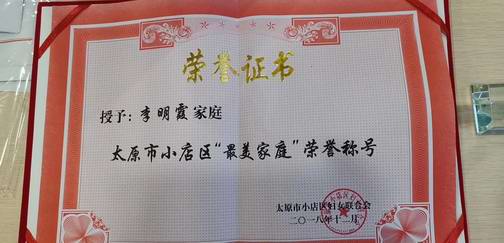 荣誉证书
授予：李明霞家庭
太原市小店区“最美家庭”荣誉称号
太原市小店区妇女联合会
二〇一八年十二月